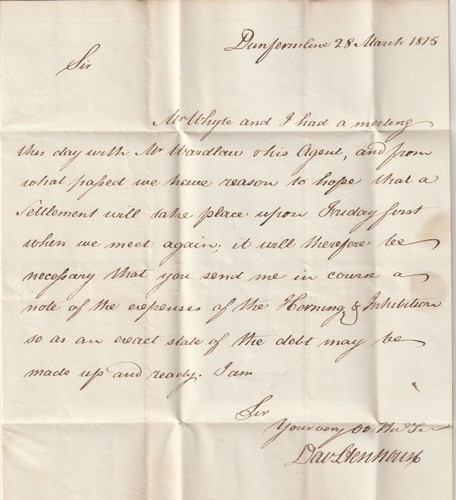 Dunfermline 28 March 1815
Sir
Mr Whyte and I had a meeting
this day with Mr Wardlaw & his Agent, and from
what passed we have reason to hope that a
Settlement will take place upon Friday first
when we meet again, it will therefore be
necessary that you send me in course a
note of the expenses of the Horning & Inhibition
so as an exact state of the debt may be
made up and ready. I am
Sir
Your very
Dav Stenhouse